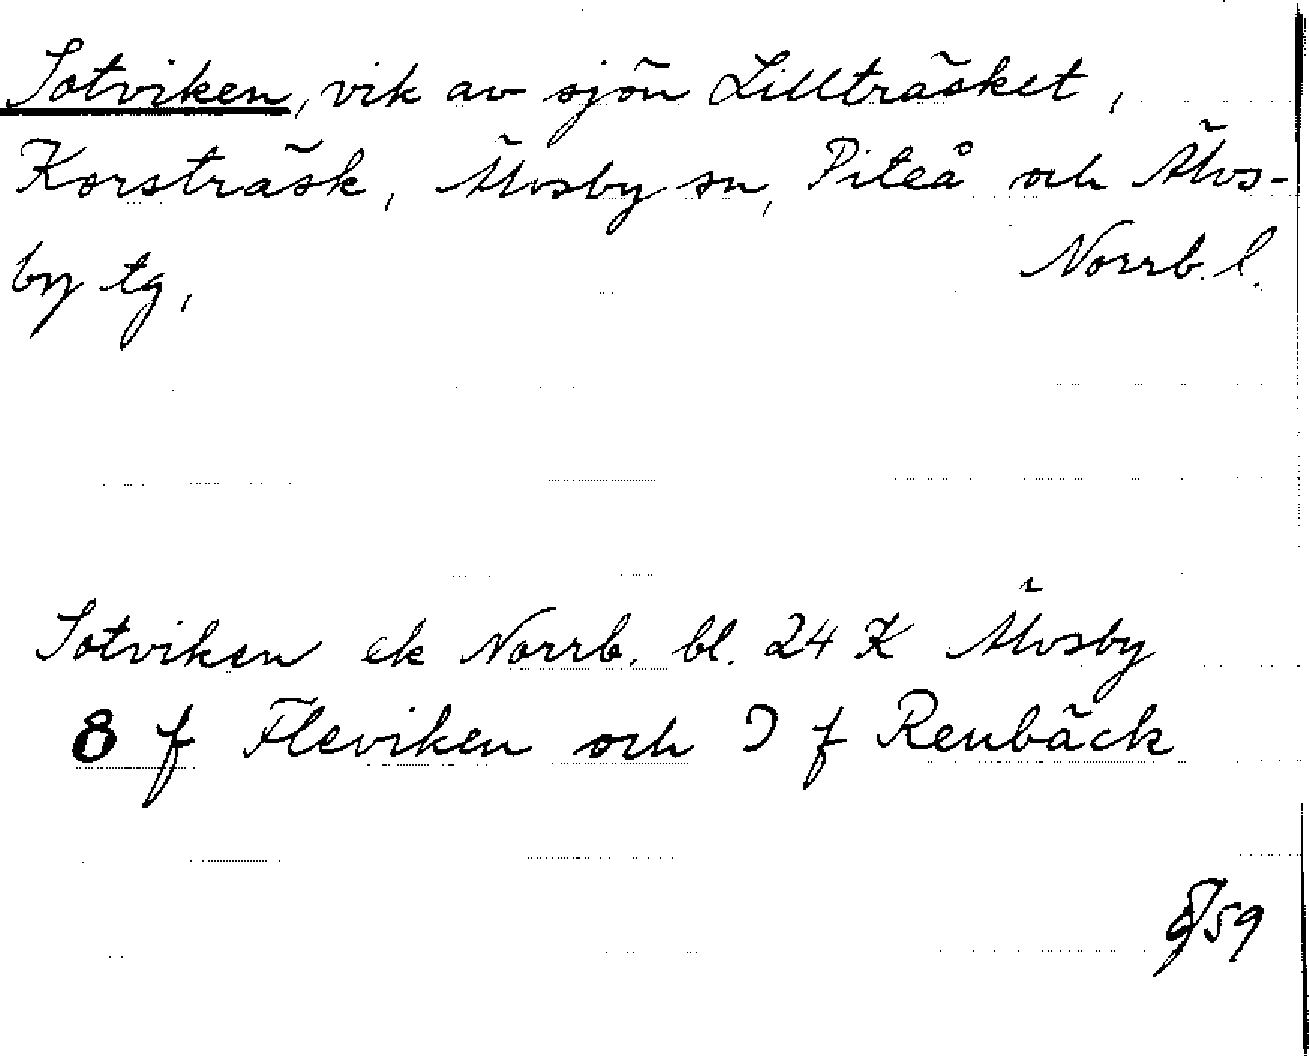 Sotviken, vik av sjön Lillträsket,
Korsträsk, Älvsby sn, Piteå och Älvs-
by tg, Norrb. l.
Sotviken ek Norrb. bl. 24 K Älvsby
8 f Fleviken och J f Renbäck
59